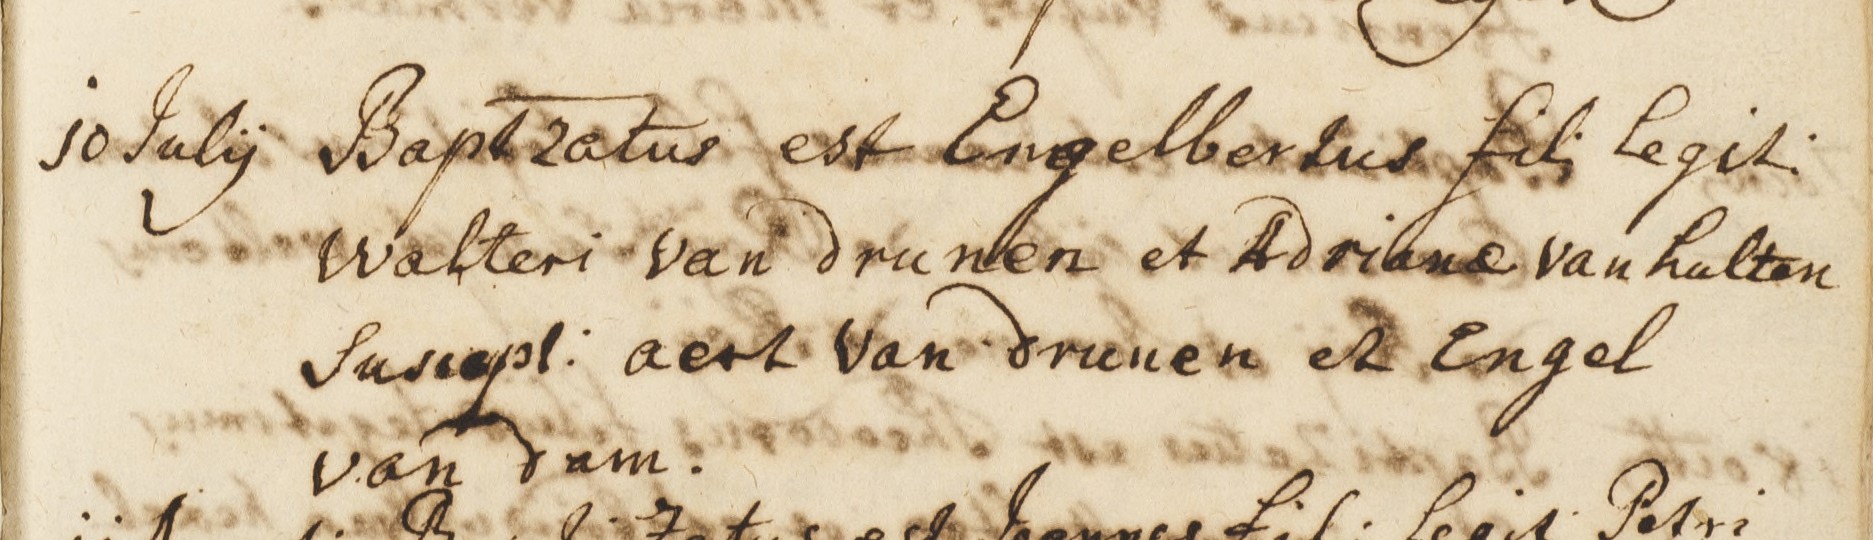 10 Julij Baptzatus est Engelbertus fili legit:
Walteri van drunen et Adrianæ van hulten
Suscept: aert van drunen et Engel
van dam.
Baptizatus est Joannes fili: legit: Petri